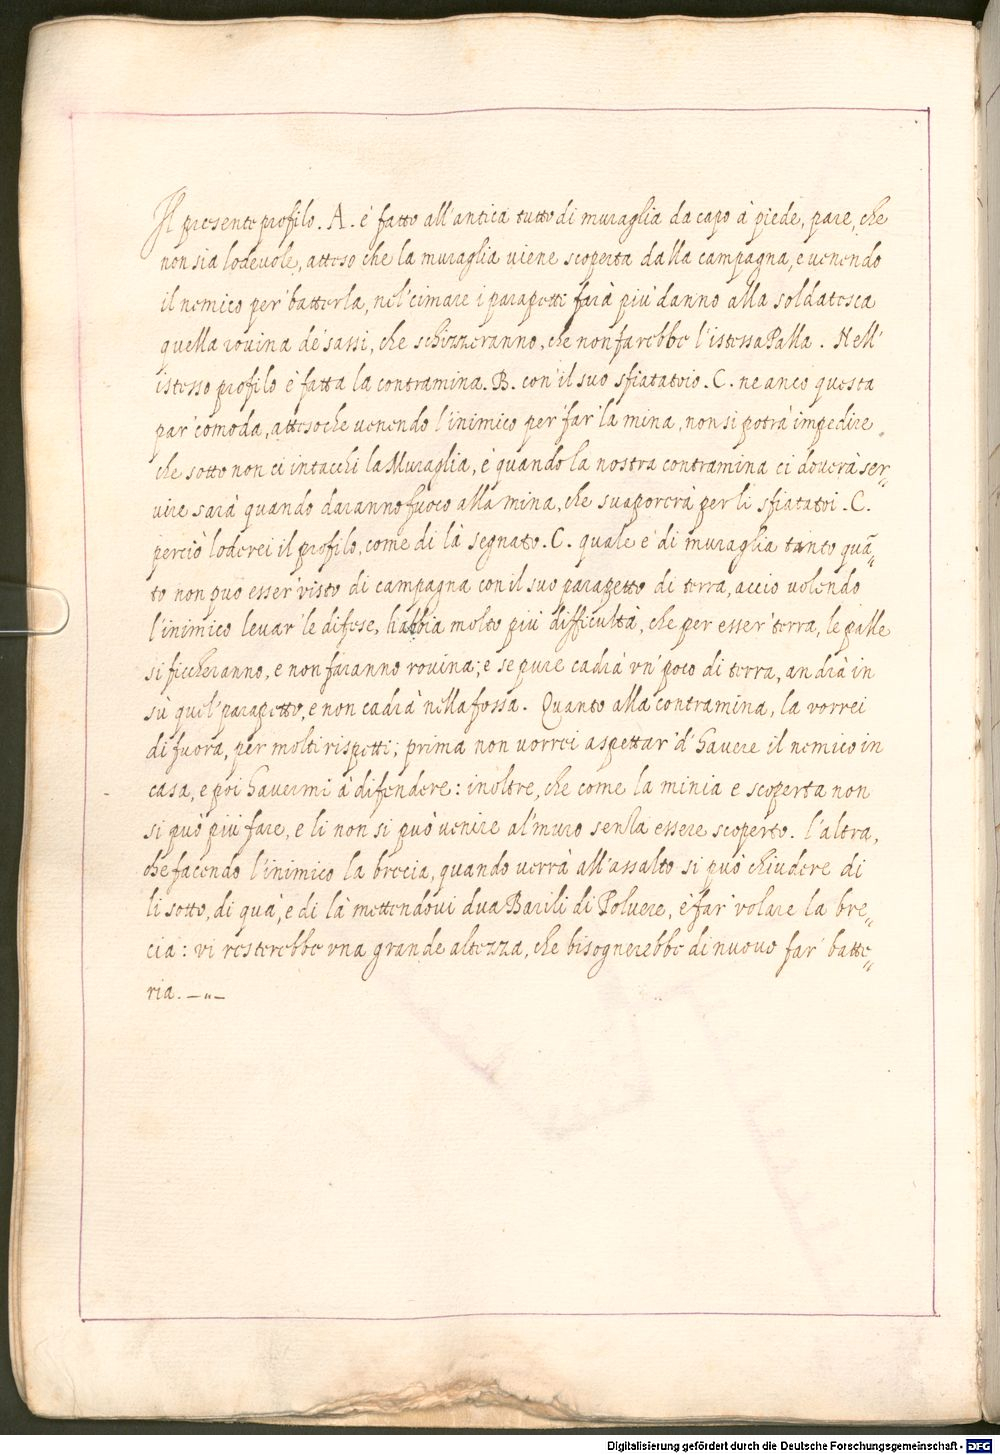 Il presente profilo. A. é fatto all'antica tutto di muraglia da capo à piede, pare, che
non sia lodevole, atteso che la muraglia viene scoperta dalla campagna, e venendo
il nemico per batterla, nel'cimare i parapetti farà più danno alla soldatesca
quella rovina dé sassi, che schizzeranno, che non farebbe l'istessa Palla. Nell'
istesso profilo é fatta la contramina. B. con il suo sfiatatoio. C. ne anco questa
par comoda, attesoche venendo l'inimico per far la mina, non si potrà impedire
che sotto non ci intacchi la Muraglia, é quando la nostra contramina ci doverà ser„
vire sarà quando daranno fuoco alla mina, che suaporerà per li sfiatatoi. C.
perciò loderei il profilo, come di là segnato. C. quale é di muraglia tanto quā„
to non può esser visto di campagna con il suo parapetto di terra, accio volendo
l'inimico levar le difese, habbia molto più difficultà, che per esser terra, le palle
si ficcheranno, e non faranno rovina; e se pure cadrà vn' poco di terra, andrà in
sù quel parapetto, e non cadrà nella fossa. Quanto alla contramina, la vorrei
di fuora, per molti rispetti; prima non vorrei aspettar d' havere il nemico in
casa, e poi havermi à difendere: inoltre, che come la minia e scoperta non
si può più fare, e li non si può venire al'muro senza essere scoperto. l'altra,
che facendo l'inimico la brecia, quando verrà all'assalto si può chiudere di
li sotto, di quà, e di là mettendovi dua Barili di Polvere, é far volare la bre„
cia: vi resterebbe vna grande altezza, che bisognerebbe di nuovo far batte„
ria. —"—
Digitalisierung gefördert durch die Deutsche Forschungsgemeinschaft - DFG